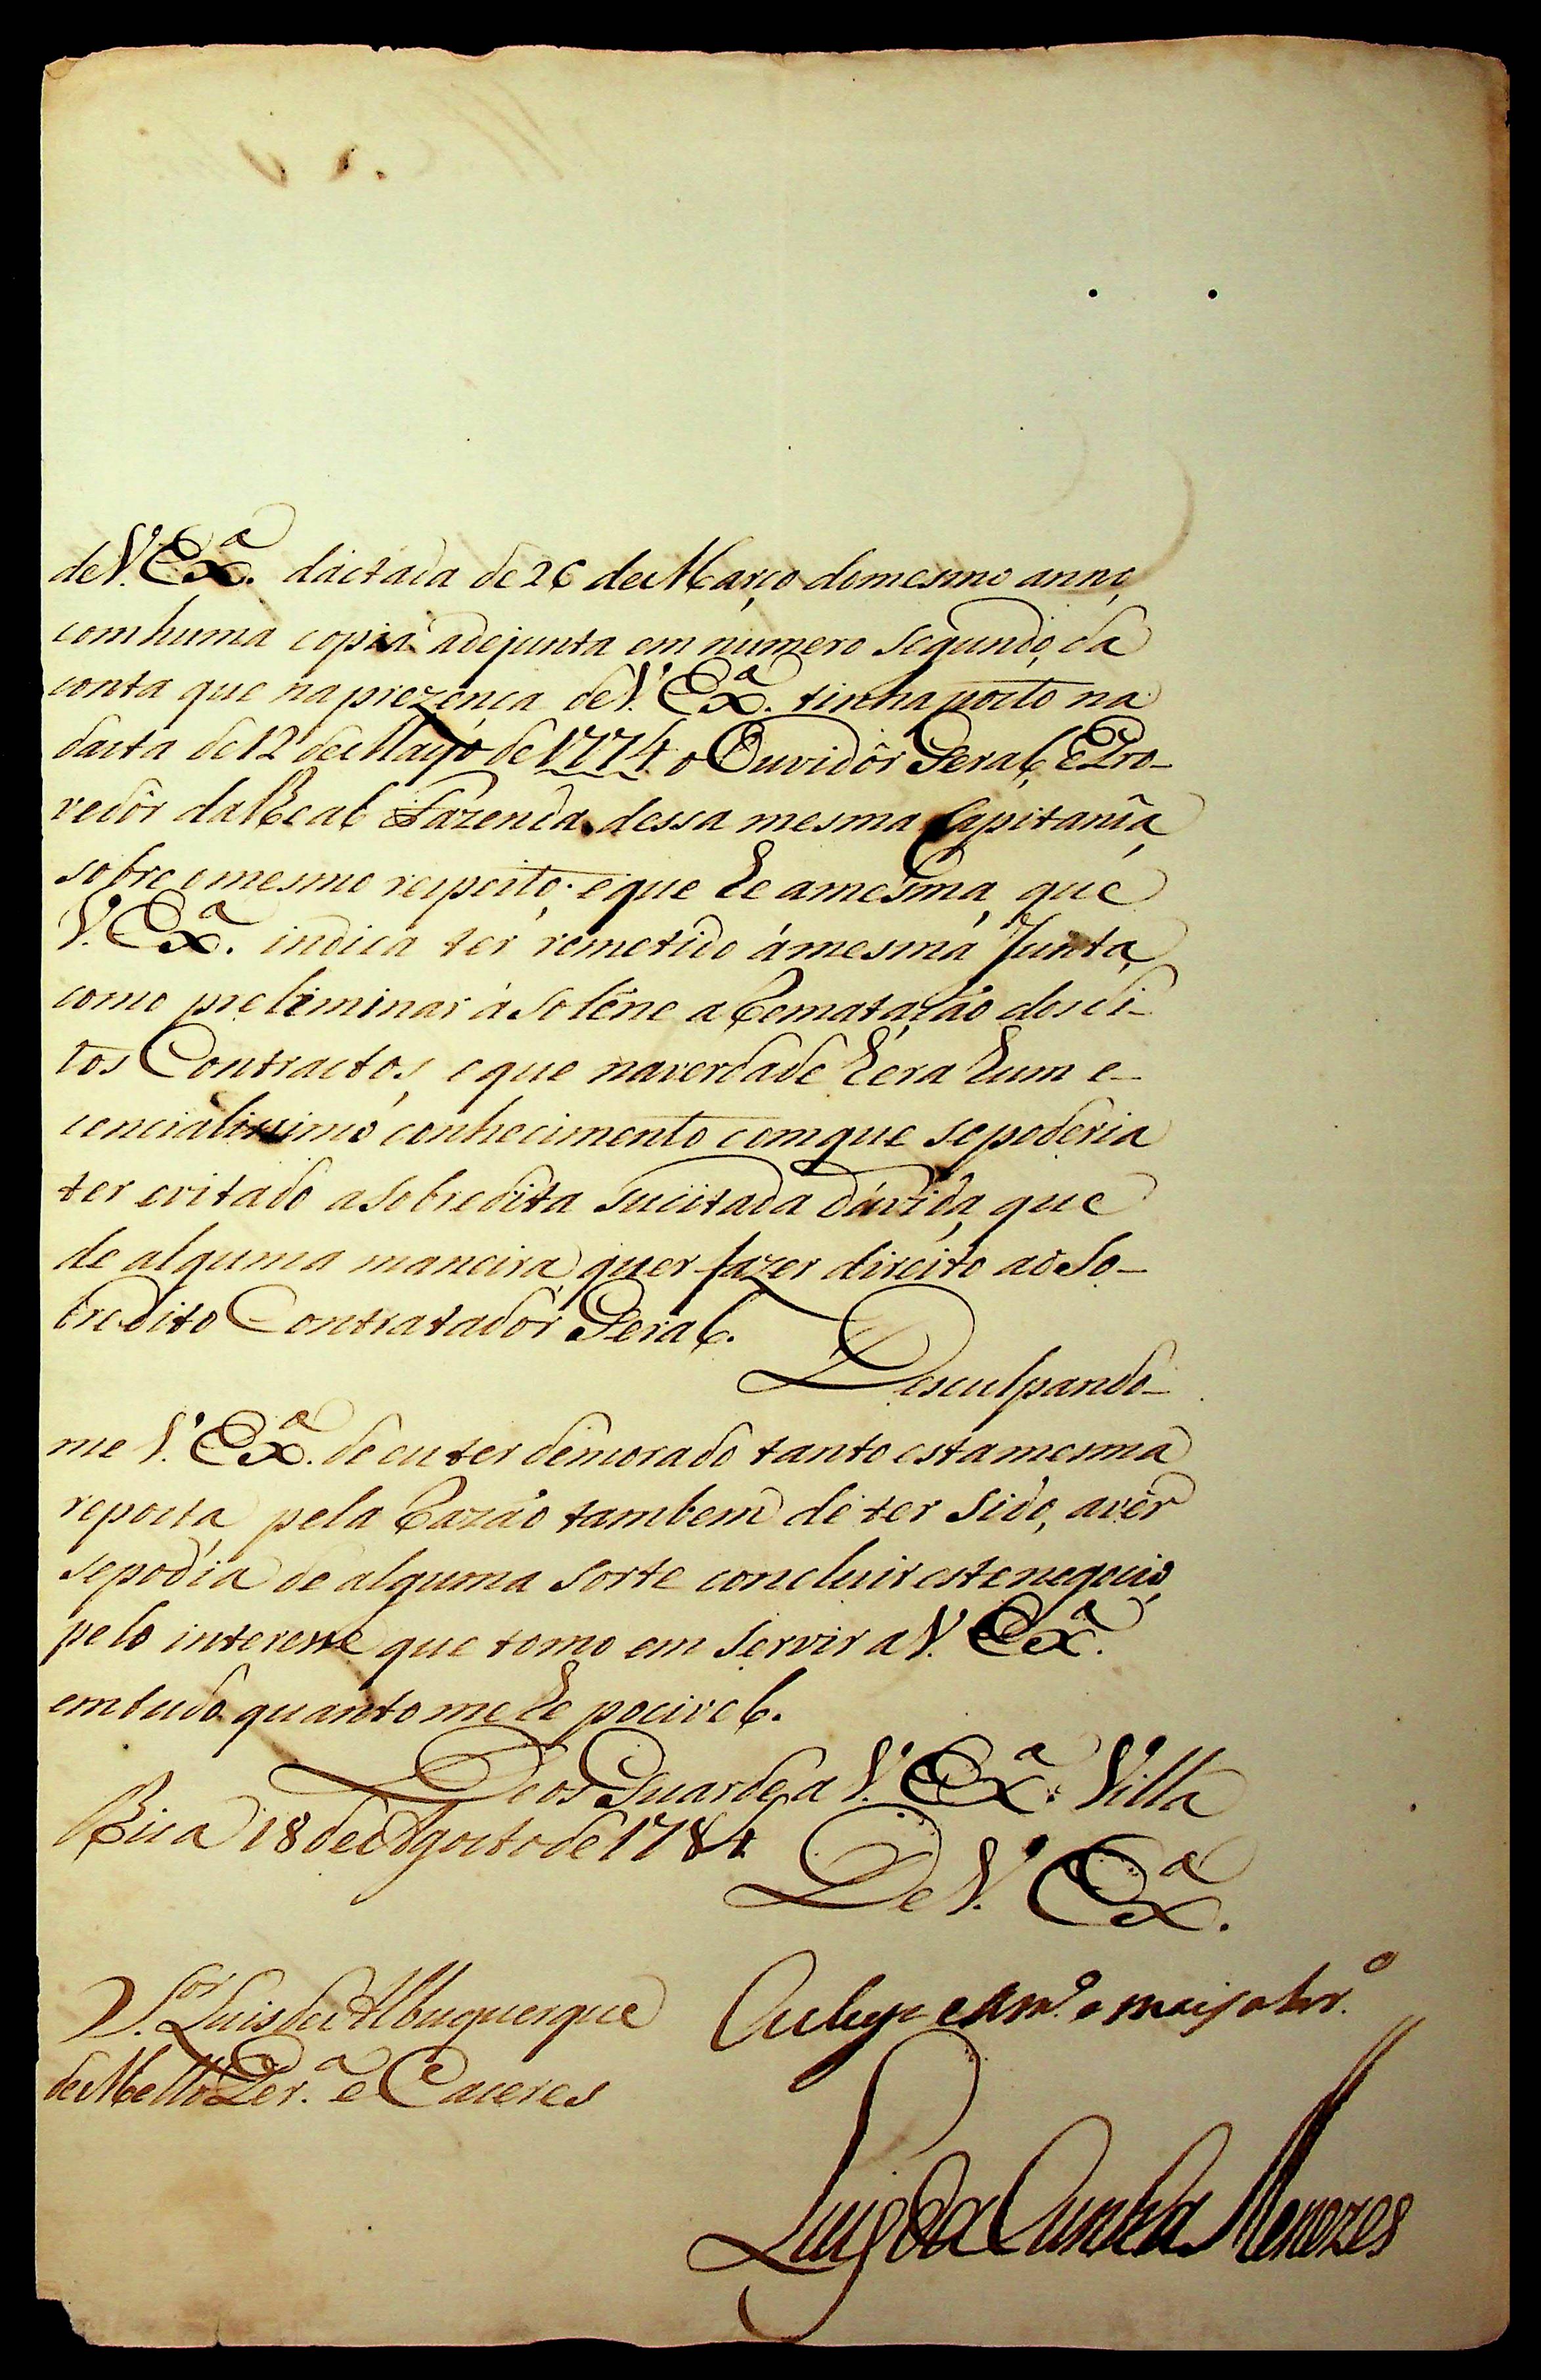 de V. Exª. dactada de 26 de Março domesmo anno,
com huma copia adejunta em numero segundo, da
conta que naprezença de V. Exª. tinha posto na
dacta de 12 de Mayo de 1774 o Ouvidôr Geral, E Pro-
vedôr da Real Fazenda dessa mesma Capitanîa,
sobre o mesmo respeito; e que he amesma, que
V. Exª. indica ter remetido ámesma Junta,
como preliminar á Soléne a Rematação dos di-
tos Contractos, e que naverdade hera hum e-
cencialissimo conhecimento comque sepoderia
ter evitado aSobredita Sucitada dúvida, que
de alguma maneira quer fazer direito aoSo-
bredito Contratadôr Geral.
Desculpando-
me V. Exª. de eu ter demorado tanto estamesma
reposta, pela Razão tambem de ter Sido, avêr
sepodia de alguma Sorte concluir estenegocio,
pelo interesse que tomo em Servir a V. Exª.
emtudo quanto me he pocivel.
Deos Guarde a V. Exª. Villa
Rica 18 de Agosto de 1784
De V. Exª.
S.or Luis de Albuquerque
de Mello Per.ª e Caceres
e Am.º e mais obr.º
Luis da Cunha Menezes